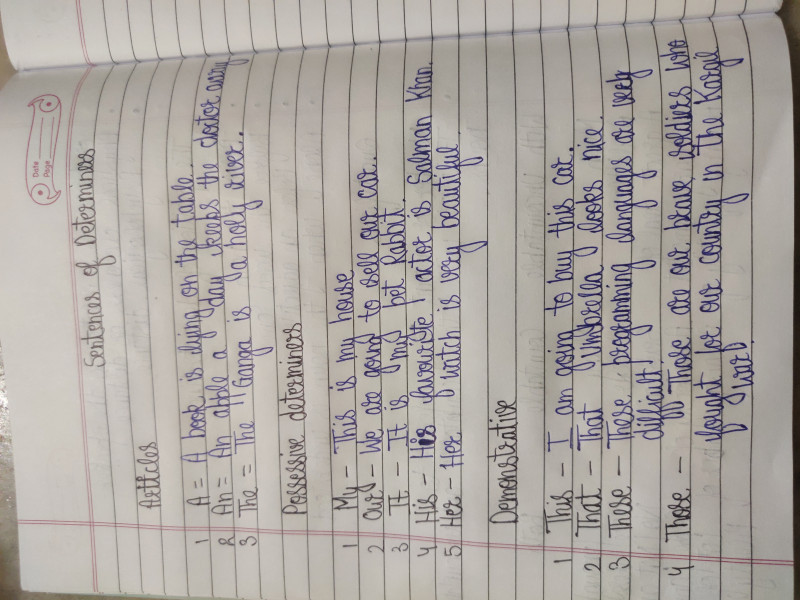 Date
Page
Sentences of Determiners
Articles
1 A = A book is lying on the table.
2 An = An apple a day keeps the doctor away
3 The = The Ganga is a holy river.
Possessive determiners
1 My - This is my house
2 Our - We are going to sell our car.
3 It - It is my pet Rabbit.
4 His - His favourite actor is Salman Khan.
5 Her - Her watch is very beautiful.
Demonstrative
1 This - I am going to buy this car.
2 That - That Umbrella looks nice.
3 These - These programming languages are very
difficult.
4 Those - Those are our brave soldiers who
fought for our country in the Kargil
war.